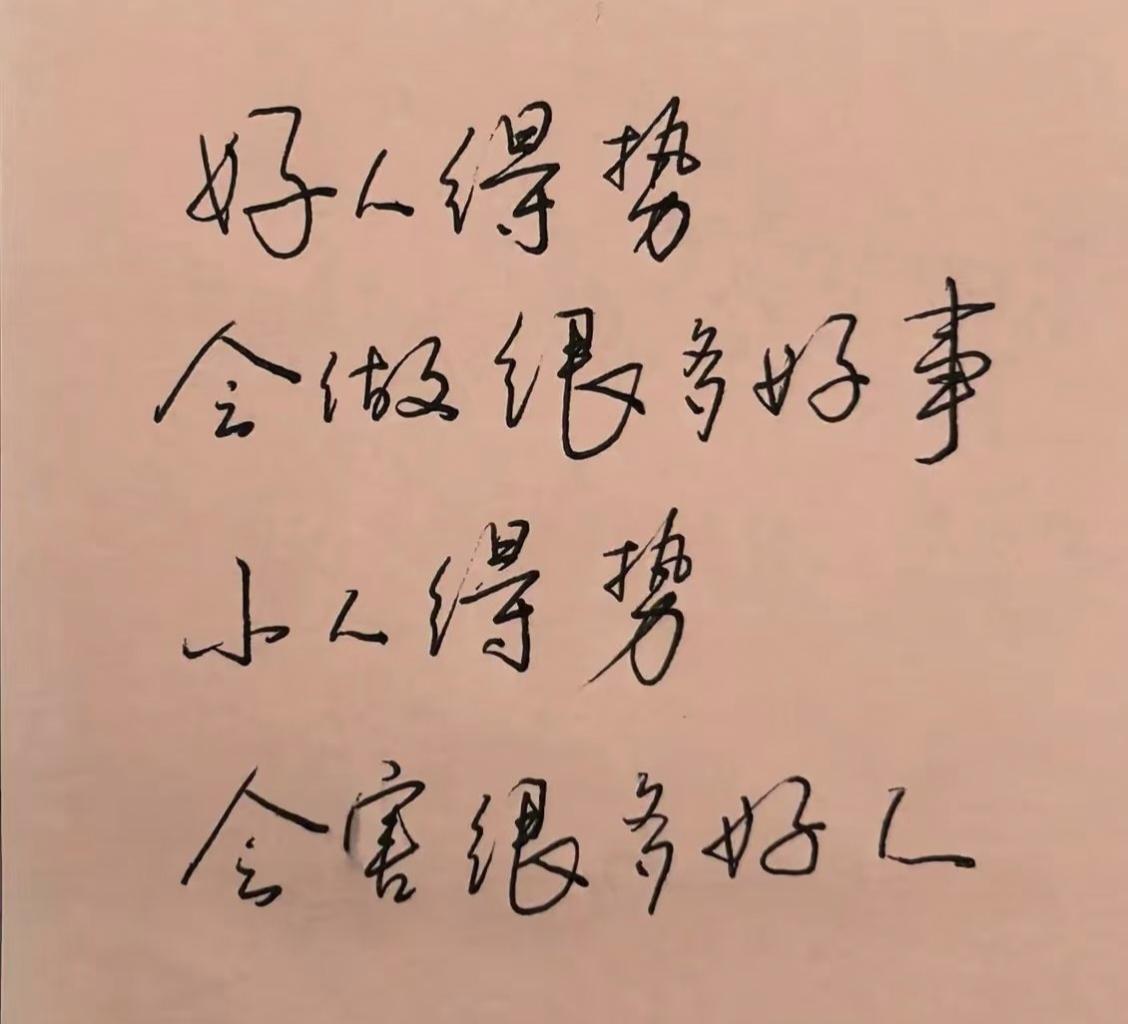 好人得势
会做很多好事
小人得势
会害很多好人